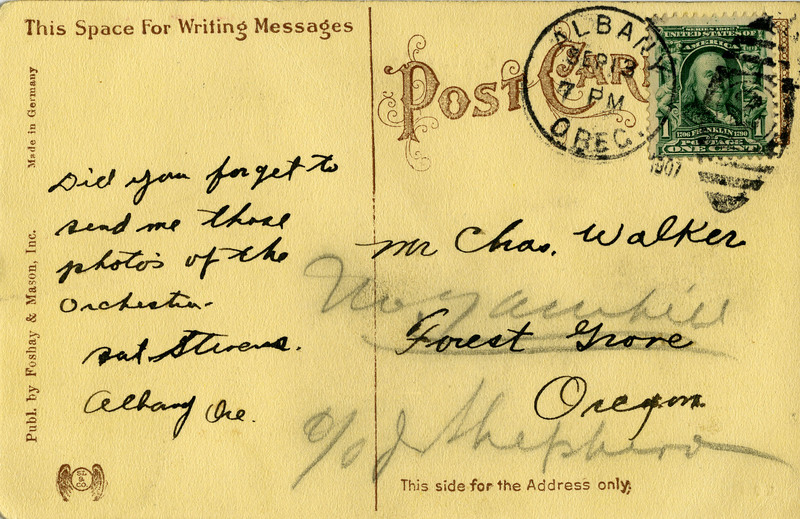 This Space For Writing Messages
POST CARD
ALBANY
SEP 13
7 PM
OREG.
1907
SERIES 1902
UNITED STATES OF
AMERICA
1706 FRANKLIN 1790
1 POSTAGE 1
ONE CENT
Made in Germany
Publ. by Foshay & Mason, Inc.
Did you forget to
send me those
photo's of the
Orchestra.
Stevens.
Albany Ore.
Mr Chas. Walker
No. Yamhill
Forest Grove
Oregon.
c/o J Shepherd
This side for the Address only;
SL
& CO.